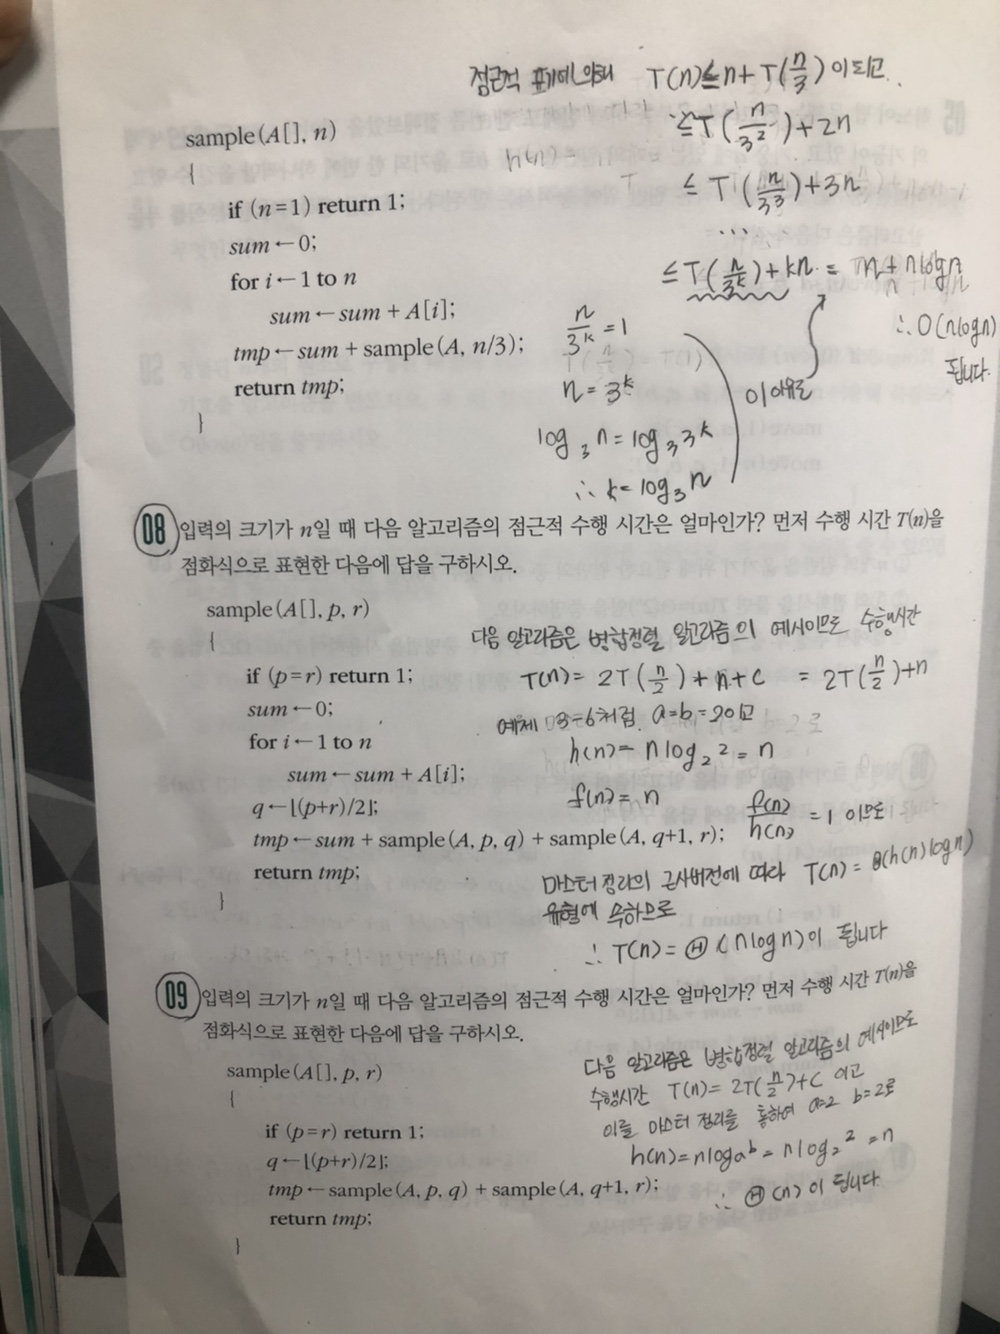 점근적 표기에 의해 T(n)≤n+T(n/3)이 되고
≤T(n/3²)+2n
≤T(n/3³)+3n
...
≤T(n/3^k)+kn = n+nlogn
∴O(nlogn)
됩니다.
sample(A[], n)
{
if (n=1) return 1;
sum←0;
for i←1 to n
sum←sum + A[i];
tmp←sum + sample(A, n/3);
return tmp;
}
n/3^k = 1
n = 3^k
log₃n = log₃3^k
∴ k = log₃n
이 이유로
08 입력의 크기가 n일 때 다음 알고리즘의 점근적 수행 시간은 얼마인가? 먼저 수행 시간 T(n)을
점화식으로 표현한 다음에 답을 구하시오.
sample(A[], p, r)
{
if (p=r) return 1;
sum←0;
for i←1 to n
sum←sum + A[i];
q←⌊(p+r)/2⌋;
tmp←sum + sample(A, p, q) + sample(A, q+1, r);
return tmp;
}
다음 알고리즘은 병합정렬 알고리즘의 예시이므로 수행시간
T(n)= 2T(n/2)+n+c = 2T(n/2)+n
예제 3-6처럼 a=b=2이고
h(n)= nlog₂2 = n
f(n)= n
f(n)/h(n) = 1 이므로
마스터 정리의 근사버전에 따라 T(n)= θ(h(n)logn)
유형에 속하므로
∴ T(n)= Θ(nlogn)이 됩니다
09 입력의 크기가 n일 때 다음 알고리즘의 점근적 수행 시간은 얼마인가? 먼저 수행 시간 T(n)을
점화식으로 표현한 다음에 답을 구하시오.
sample(A[], p, r)
{
if (p=r) return 1;
q←⌊(p+r)/2⌋;
tmp←sample(A, p, q) + sample(A, q+1, r);
return tmp;
}
다음 알고리즘은 병합정렬 알고리즘의 예시이므로
수행시간 T(n)= 2T(n/2)+c 이고
이를 마스터 정리를 통하여 a=2 b=2로
h(n)=nlogaᵇ = nlog₂2 = n
∴ Θ(n)이 됩니다